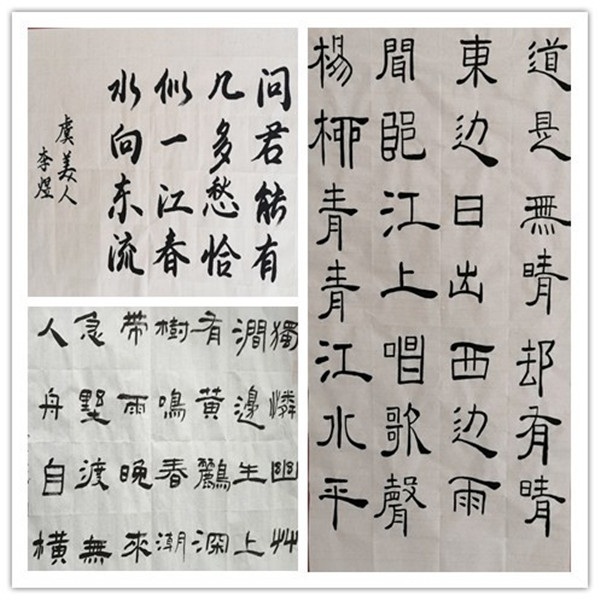 问君能有
几多愁恰
似一江春
水向东流
虞美人
李煜
獨憐幽艸
澗邊生上
有黄鸝深
樹鳴春潮
帶雨晚來
急野渡無
人舟自横
楊柳青青江水平
聞郎江上唱歌聲
東边日出西边雨
道是無晴却有晴